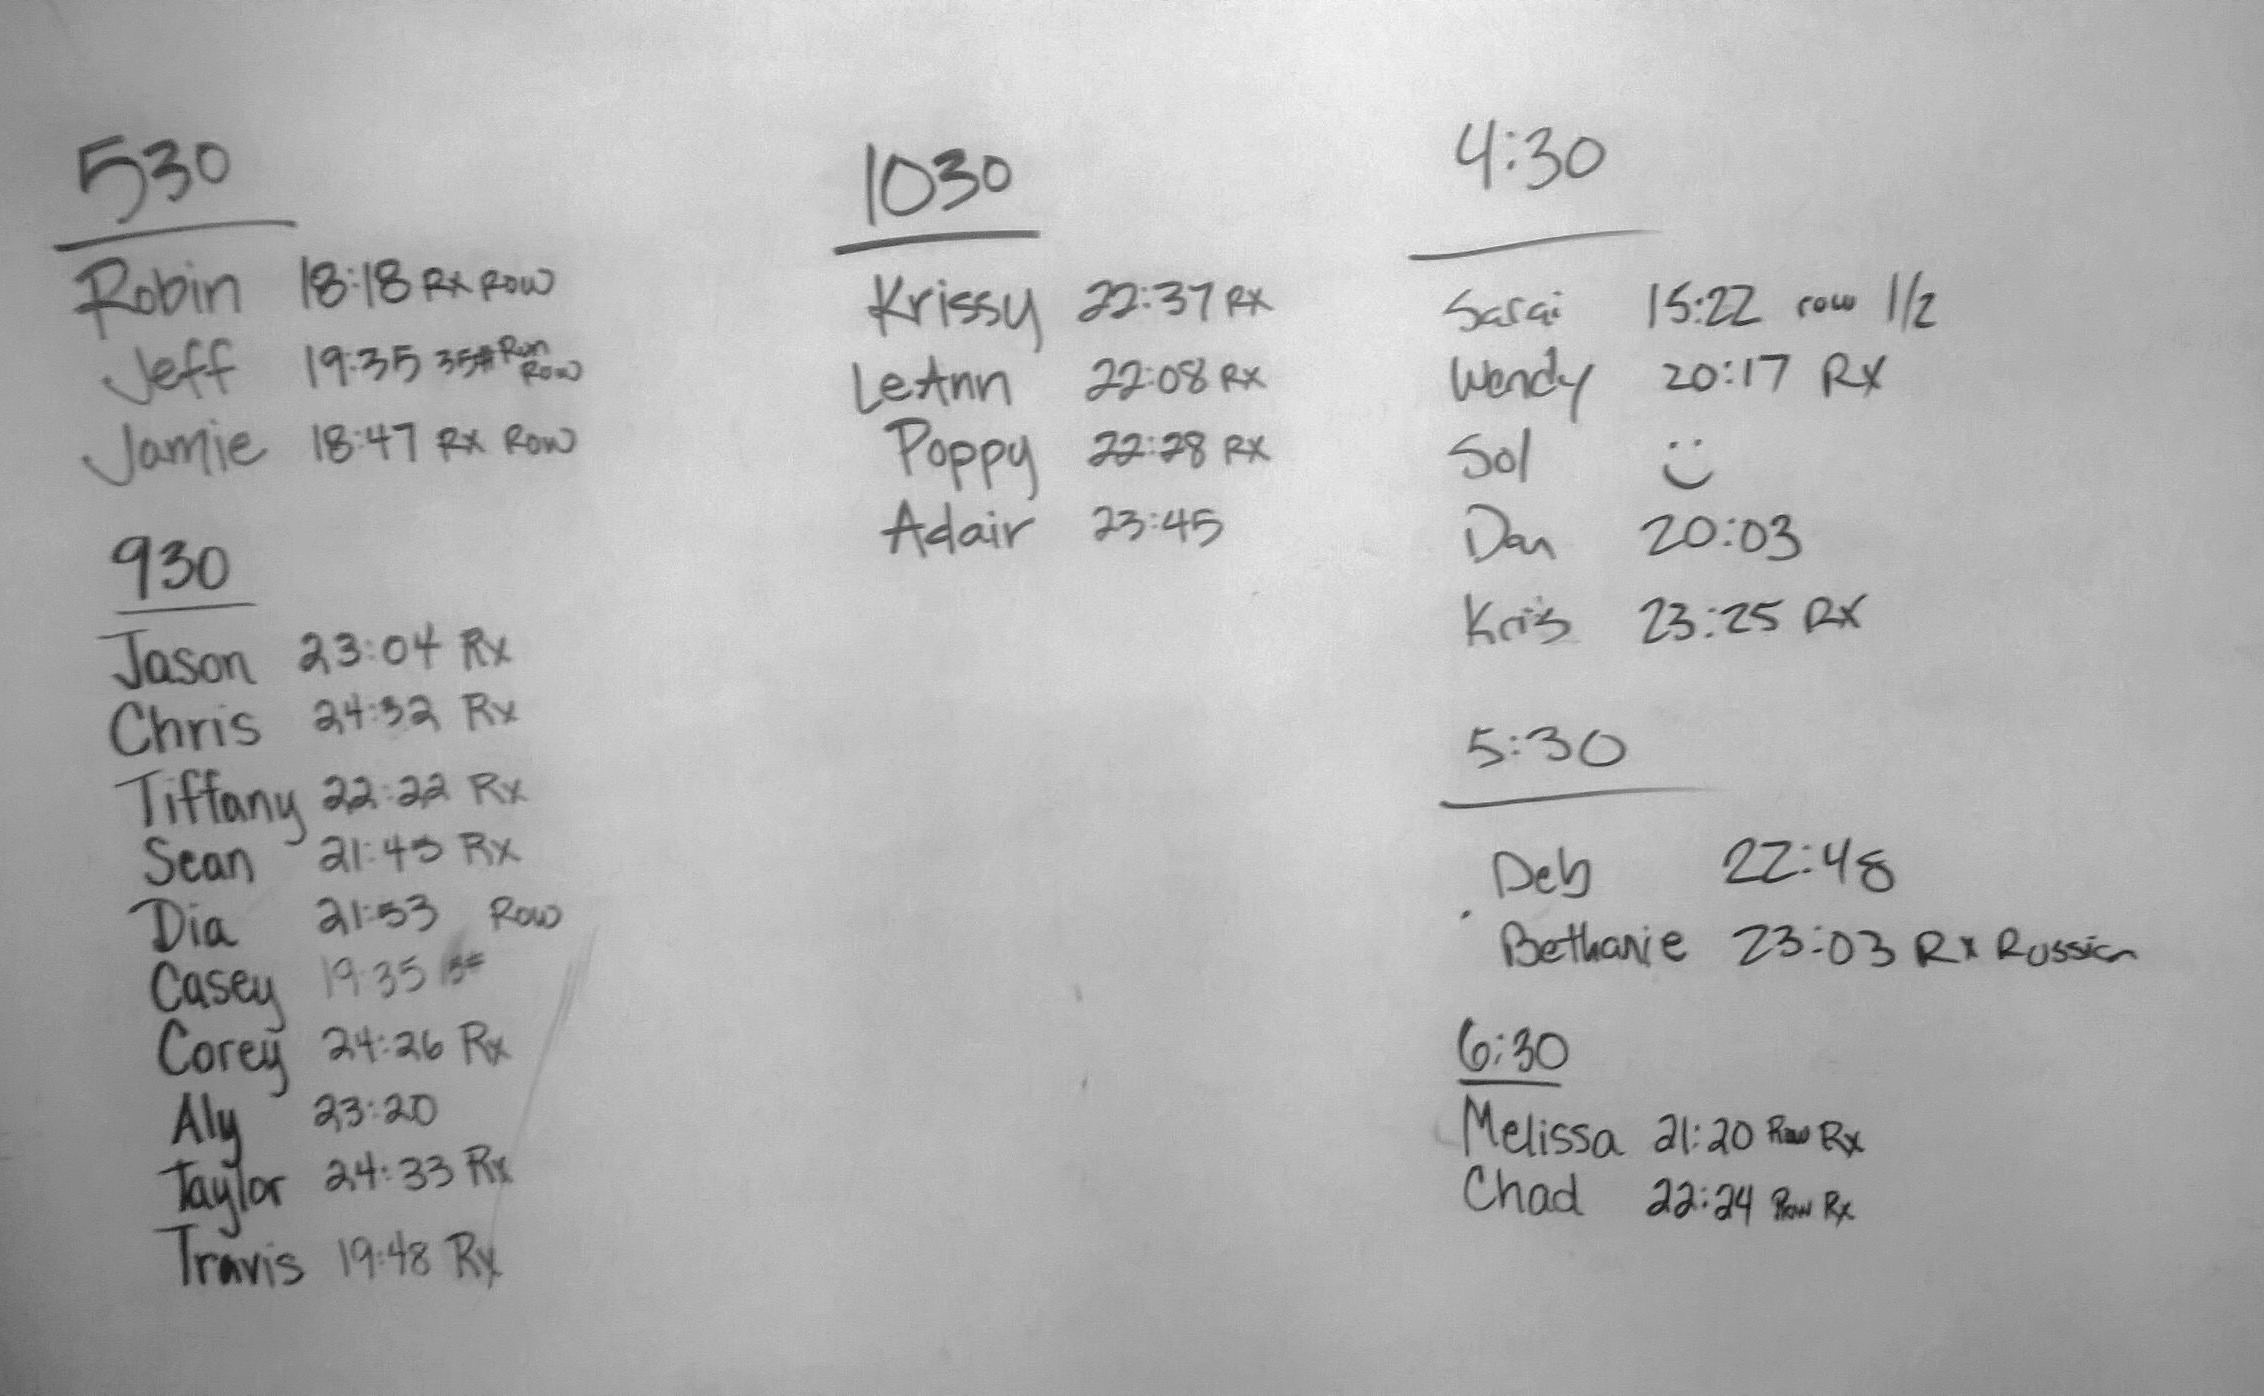 530
Robin 18:18 Rx Row
Jeff 19:35 35# Run Row
Jamie 18:47 Rx Row
930
Jason 23:04 Rx
Chris 24:32 Rx
Tiffany 22:22 Rx
Sean 21:45 Rx
Dia 21:53 Row
Casey 19:35
Corey 24:26 Rx
Aly 23:20
Taylor 24:33 Rx
Travis 19:48 Rx
1030
Krissy 22:37 Rx
LeAnn 22:08 Rx
Poppy 22:28 Rx
Adair 23:45
4:30
Sarai 15:22 row 1/2
Wendy 20:17 Rx
Sol
Dan 20:03
Kris 23:25 RX
5:30
Deb 22:48
Bethanie 23:03 Rx Russian
6:30
Melissa 21:20 Row Rx
Chad 22:24 Row Rx